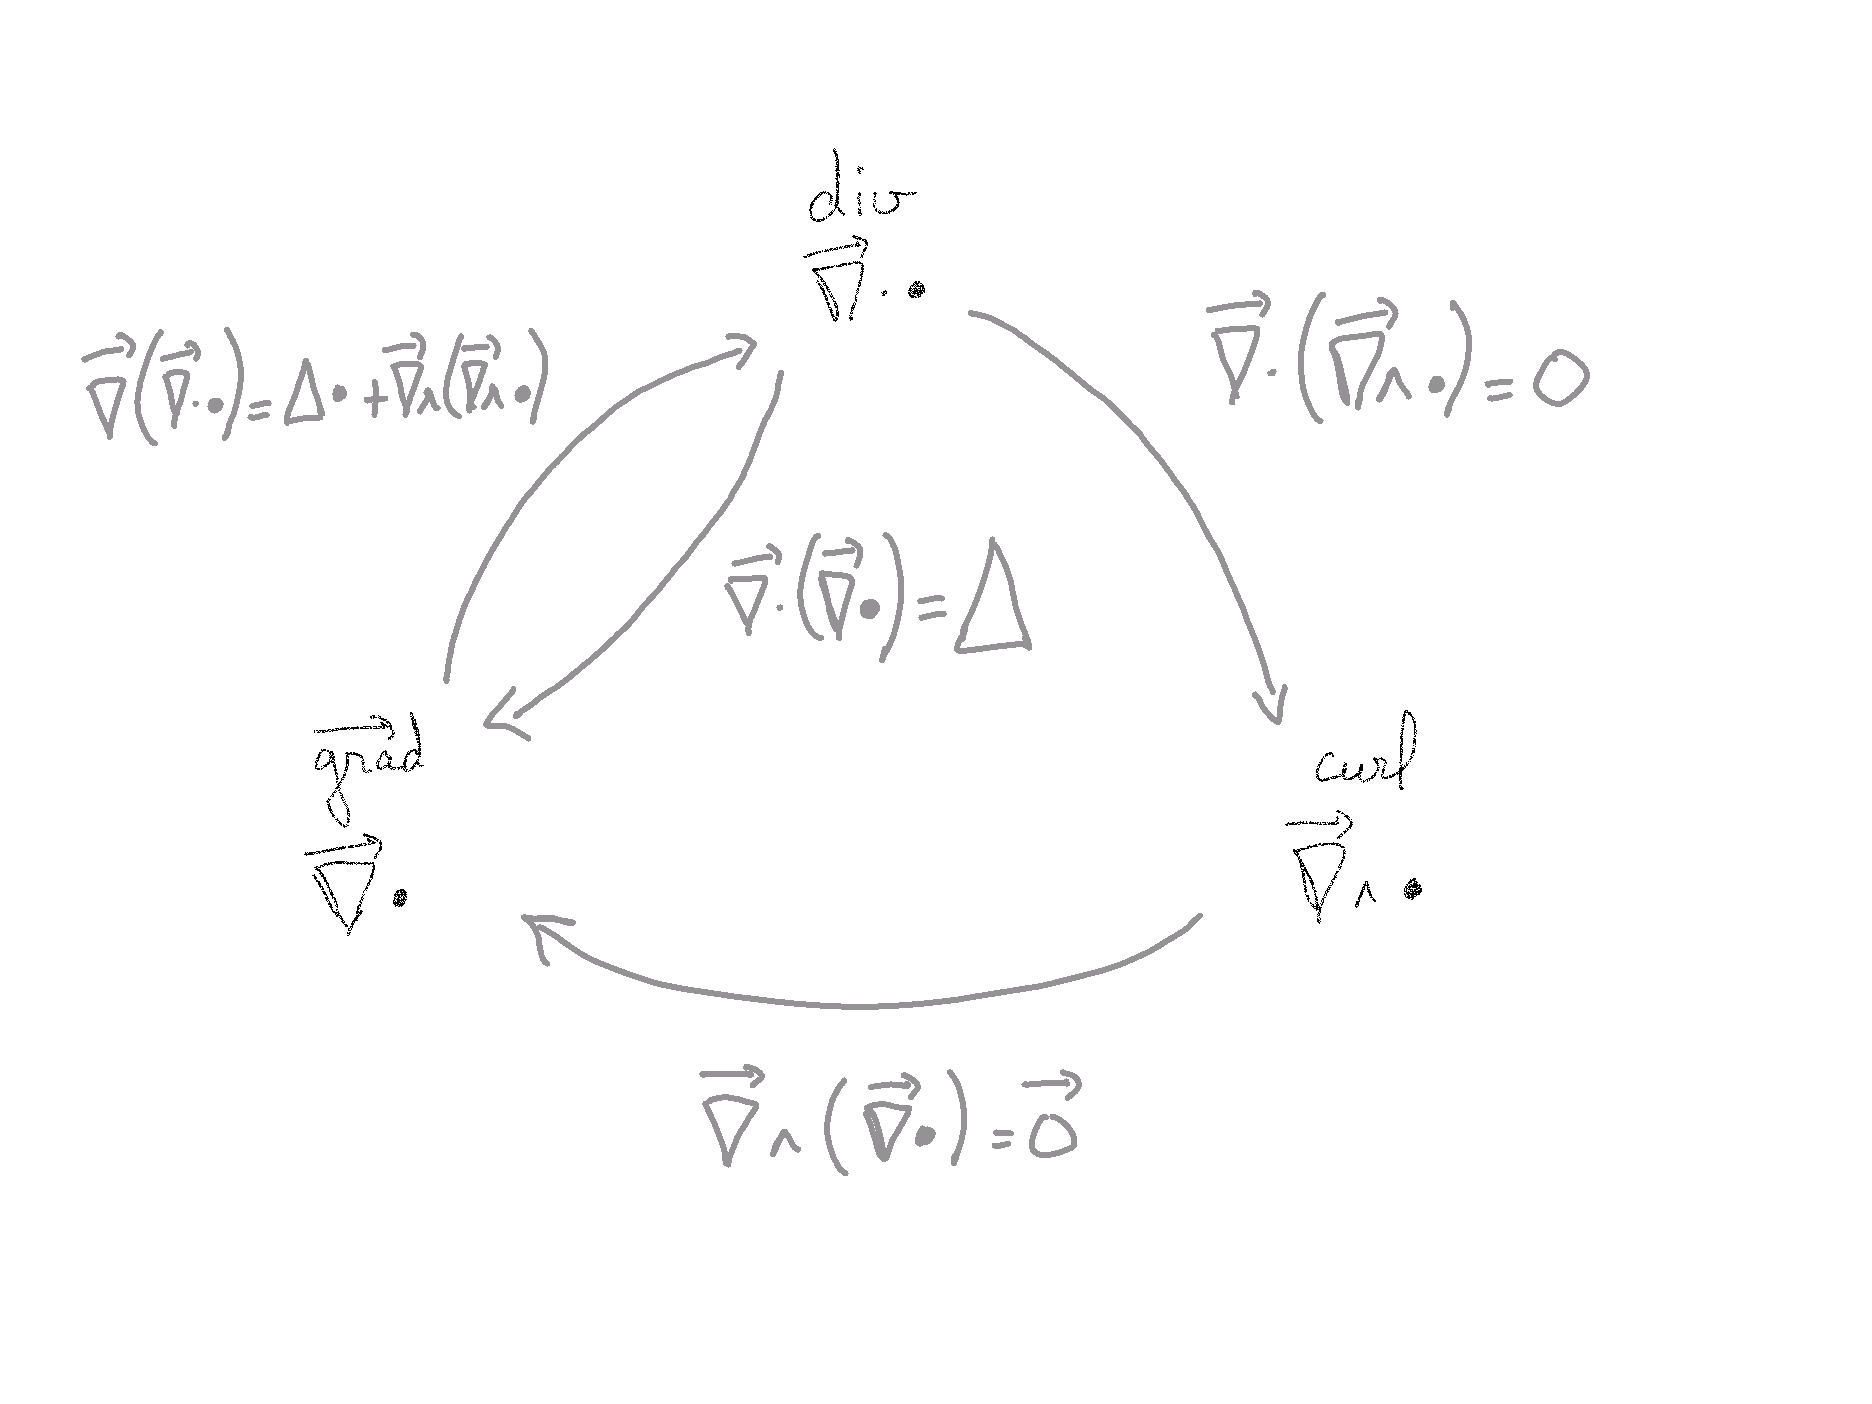 div
∇⃗ · •
∇⃗(∇⃗ · •) = Δ• + ∇⃗∧(∇⃗∧•)
∇⃗ · (∇⃗∧ •) = 0
∇⃗ · (∇⃗•) = Δ
grad⃗
∇⃗ •
curl
∇⃗ ∧ •
∇⃗ ∧ (∇⃗•) = 0⃗